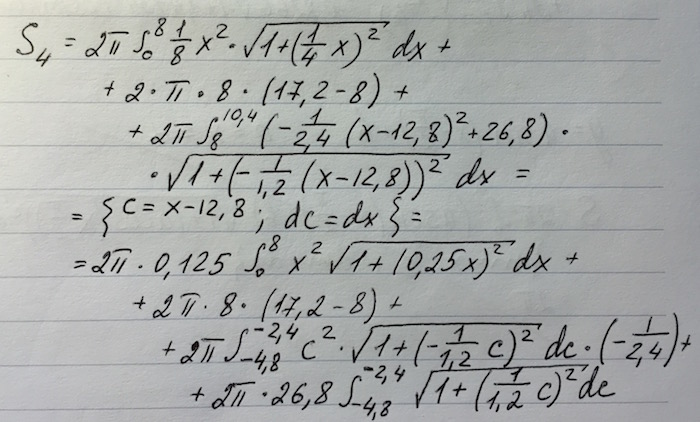 S₄ = 2π ∫₀⁸ 1/8 x² · √(1+(1/4 x)²) dx +
+ 2 · π · 8 · (17,2-8) +
+ 2π ∫₈^10,4 (-1/2,4 (x-12,8)² + 26,8) ·
· √(1+(-1/1,2 (x-12,8))²) dx =
= {c = x-12,8; dc = dx} =
= 2π · 0,125 ∫₀⁸ x² √(1+(0,25x)²) dx +
+ 2π · 8 · (17,2-8) +
+ 2π ∫₋₄,₈^-2,4 c² · √(1+(-1/1,2 c)²) dc · (-1/2,4) +
+ 2π · 26,8 ∫₋₄,₈^-2,4 √(1+(1/1,2 c)²) dc